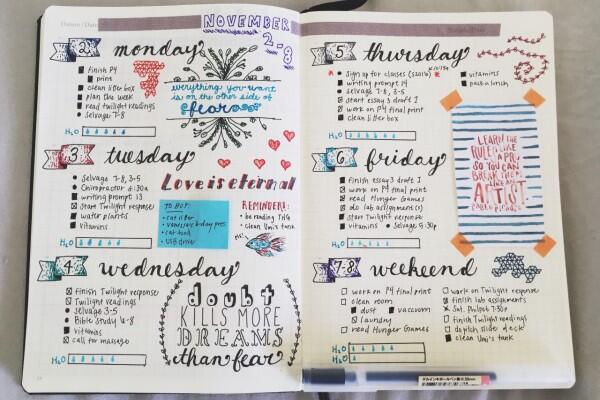 NOVEMBER
2-8
2 monday
finish P4
print
clean litter box
plan the week
read twilight readings
selvage 7-8
H2O
everything you want
is on the other side of
fear
3 tuesday
selvage 7-8, 3-5
Chiropractor
writing prompt 13
start Twilight response
water plants
vitamins
H2O
Love is eternal
TO BUY:
cat litter
cat food
USB drive
REMINDERS:
be reading THG
clean Uni's tank
4 wednesday
finish Twilight response
Twilight readings
selvage 3-5
Bible Study 6-8
vitamins
call for massage
H2O
doubt
KILLS MORE
DREAMS
than fear
5 thursday
sign up for classes
writing prompt 14
selvage 7-8, 3-5
start essay 3 draft 1
work on P4 final print
clean litter box
vitamins
pack lunch
H2O
LEARN THE
RULES LIKE A
PRO, SO YOU CAN
BREAK THEM
LIKE AN
ARTIST.
PABLO PICASSO
6 friday
finish essay 3 draft 1
work on P4 final print
read Hunger Games
do lab assignment(s)
start Twilight response
vitamins selvage 5:30p
H2O
7-8 weekend
work on P4 final print
clean room
dust vacuum
laundry
read Hunger Games
work on Twilight response
finish lab assignments
Sat. Potluck 7:30p
finish Twilight readings
polish side of deck
clean Uni's tank
H2O
H2O